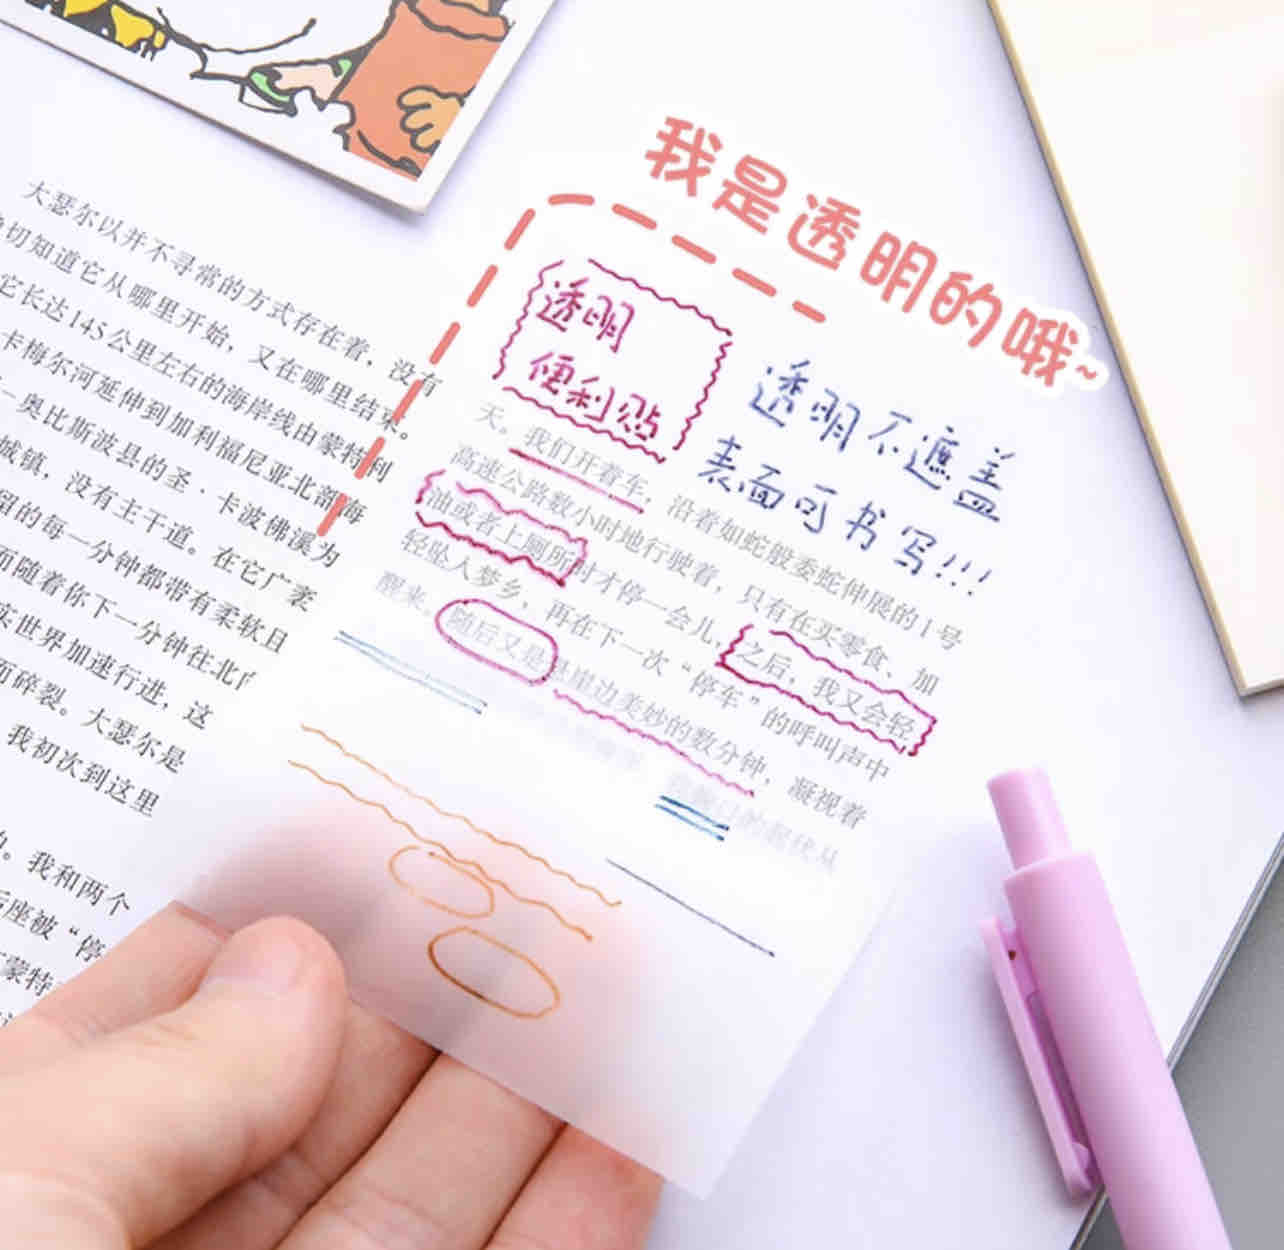 我是透明的哦~
透明
便利贴
透明不遮盖
表面可书写!!!
大瑟尔以并不寻常的方式存在着，没有
切知道它从哪里开始，又在哪里结束。
它长达145公里左右的海岸线由蒙特利
卡梅尔河延伸到加利福尼亚北部海
奥比斯波县的圣·卡波佛溪为
城镇，没有主干道。在它广袤
留的每一分钟都带有柔软且
而随着你下一分钟往北
实世界加速行进，这
而碎裂。大瑟尔是
我初次到这里
。我和两个
后座被“停
蒙特
天。我们开着车，沿着如蛇般委蛇伸展的1号
高速公路数小时地行驶着，只有在买零食、加
油或者上厕所时才停一会儿，之后，我又会轻
轻坠入梦乡，再在下一次“停车”的呼叫声中
醒来。随后又是悬崖边美妙的数分钟，凝视着